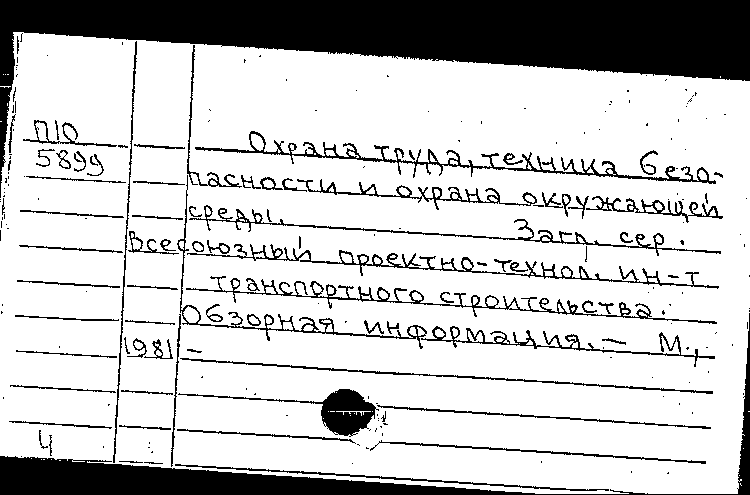 П10
5899
Охрана труда, техника безо-
пасности и охрана окружающей
среды. Загл. сер.
Всесоюзный проектно-технол. ин-т
транспортного строительства.
Обзорная информация. — М.,
1981 —
4